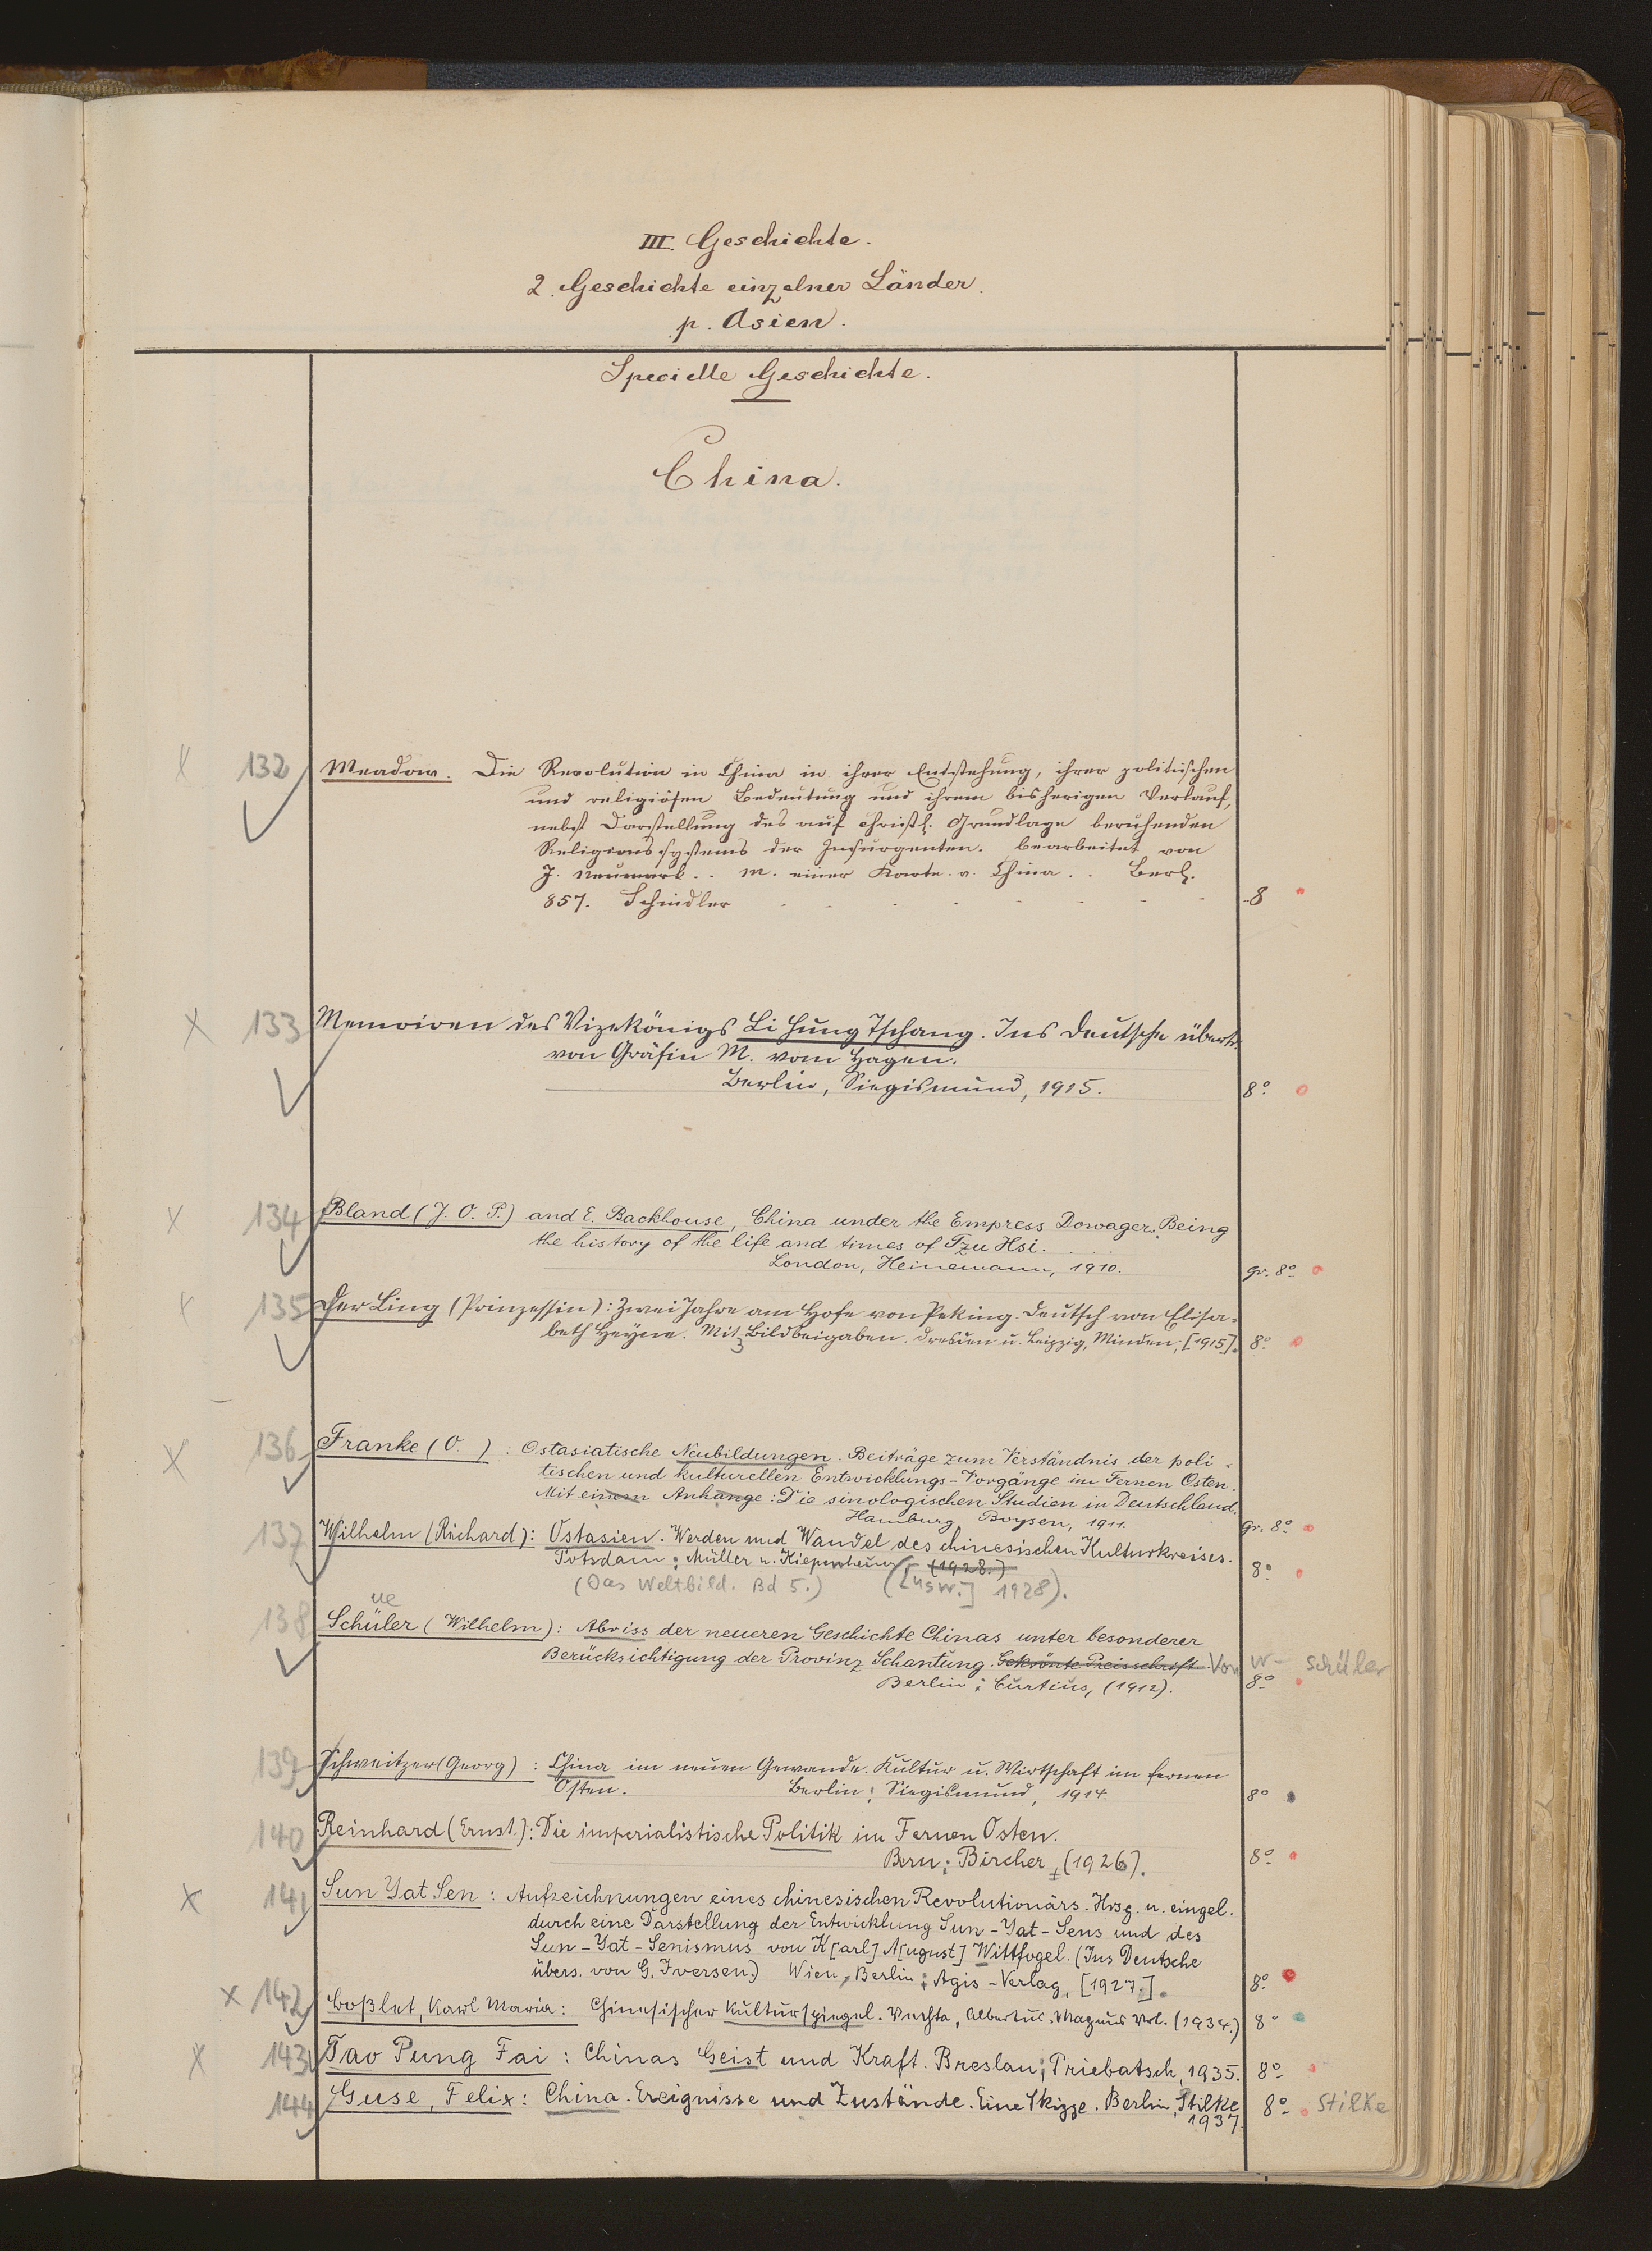 III. Geschichte.
2. Geschichte einzelner Länder.
p. Asien.
Specielle Geschichte.
China.
x 132 Meadow. Die Revolution in China in ihrer Entstehung, ihrer politischen
und religiösen Bedeutung und ihrem bisherigen Verlauf,
nebst Darstellung des auf christl. Grundlage beruhenden
Religionssystems der Insurgenten. bearbeitet von
J. Neumark . . M. einer Karte v. China . . Berl.
857. Schindler - - - - - - - 8
x 133 Memoiren des Vizekönigs Li Hung Tschang. Ins Deutsche übertr.
von Gräfin M. vom Hagen.
Berlin, Siegismund, 1915. 8°
x 134 Bland (J. O. P.) and E. Backhouse, China under the Empress Dowager. Being
the history of the life and times of Tzu Hsi.
London, Heinemann, 1910. gr. 8°
x 135 Der Ling (Prinzessin): Zwei Jahre am Hofe von Peking. Deutsch von Elisa-
beth Heyne. Mit 3 Bildbeigaben. Dresden u. Leipzig, Minden, [1915]. 8°
x 136 Franke (O. ) : Ostasiatische Neubildungen. Beiträge zum Verständnis der poli-
tischen und kulturellen Entwicklungs-Vorgänge im Fernen Osten.
Mit einem Anhange: Die sinologischen Studien in Deutschland.
Hamburg Boysen, 1911. gr. 8°
137 Wilhelm (Richard): Ostasien. Werden und Wandel des chinesischen Kulturkreises.
Potsdam: Müller u. Kiepenheuer, (1928.) 8°
(Das Weltbild. Bd 5.) ([usw.] 1928).
ue
138 Schüler (Wilhelm): Abriss der neueren Geschichte Chinas unter besonderer
Berücksichtigung der Provinz Schantung. Gekrönte Preisschrift. Von W- Schüler
Berlin: Curtius, (1912). 8°
139 Schweitzer (Georg) : China im neuen Gewande. Kultur u. Wirtschaft im fernen
Osten. Berlin: Siegismund, 1914. 8°
140 Reinhard (Ernst): Die imperialistische Politik im Fernen Osten.
Bern: Bircher, (1926). 8°
x 141 Sun Yat Sen : Aufzeichnungen eines chinesischen Revolutionärs. Hrsg. u. eingel.
durch eine Darstellung der Entwicklung Sun-Yat-Sens und des
Sun-Yat-Senismus von K[arl] A[ugust] Wittfogel. (Ins Deutsche
übers. von G. Iversen.) Wien, Berlin: Agis-Verlag, [1927.]. 8°
x 142 Boßlet, Karl Maria: Chinesischer Kulturspiegel. Vechta, Albertus-Magnus Verl. (1934.) 8°
x 143 Tao Pung Fai : Chinas Geist und Kraft. Breslau: Priebatsch, 1935. 8°
144 Guse, Felix: China. Ereignisse und Zustände. Eine Skizze. Berlin, Stilke 8° Stilke
1937.